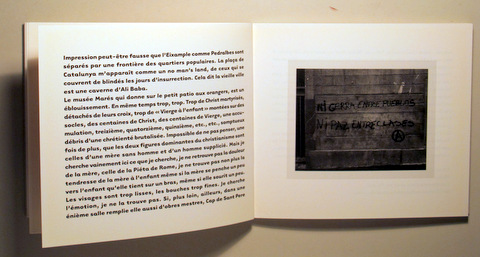 Impression peut-être fausse que l'Eixample comme Pedralbes sont
séparés par une frontière des quartiers populaires. La plaça de
Catalunya m'apparaît comme un no man's land, de ceux qui se
couvrent de blindés les jours d'insurrection. Cela dit la vieille ville
est une caverne d'Ali Baba.
Le musée Marés qui donne sur le petit patio aux orangers, est un
éblouissement. En même temps trop, trop. Trop de Christ martyrisés,
détachés de leurs croix, trop de «Vierge à l'enfant» montées sur des
socles, des centaines de Christ, des centaines de Vierge, une accu-
mulation, treizième, quatorzième, quinzième, etc., etc., somptueux
débris d'une chrétienté brutalisée. Impossible de ne pas penser, une
fois de plus, que les deux figures dominantes du christianisme sont
celles d'une mère sans homme et d'un homme supplicié. Mais je
cherche vainement ici ce que je cherche, je ne retrouve pas la douleur
de la mère, celle de la Piéta de Rome, je ne trouve pas non plus la
tendresse de la mère à l'enfant même si la mère se penche un peu
vers l'enfant qu'elle tient sur un bras, même si elle sourit un peu.
Les visages sont trop lisses, les bouches trop fines. Je cherche
l'émotion, je ne la trouve pas. Si, plus loin, ailleurs, dans une
énième salle remplie elle aussi d'obres mestres, Cap de Sant Pere
NI GERRA ENTRE PUEBLOS
NI PAZ ENTRE CLASES